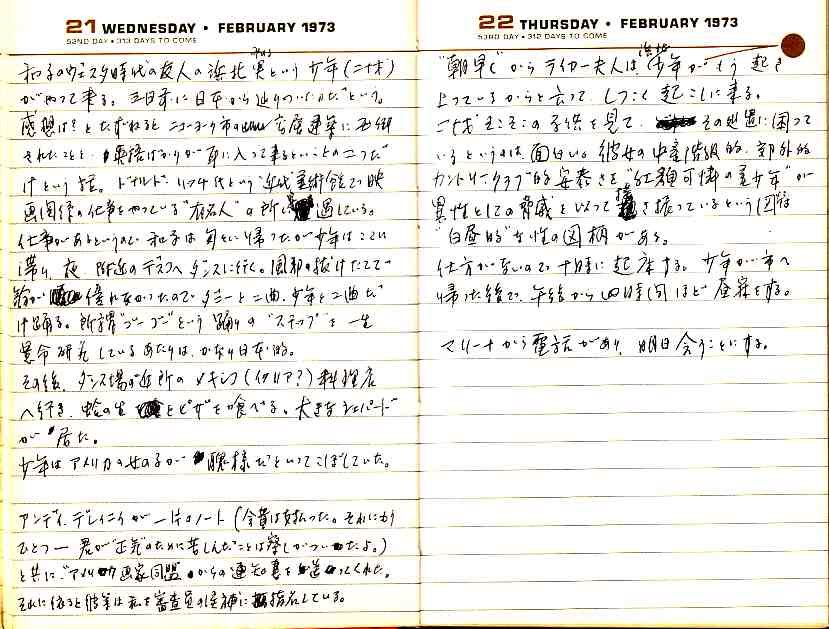 21 WEDNESDAY • FEBRUARY 1973
52ND DAY • 313 DAYS TO COME
和子のヴェスタ時代の友人の浜北 実という少年(二十才)
がやって来る。三日前に日本から辿りついたのだという。
感想は?とたずねるとニューヨーク市の 高層建築に圧倒
されたことと、英語ばかりが耳に入って来るということの二つだ
けという話。ドナルド・リッチイという近代美術館で映
画関係の仕事をやっている"有名人"の所に 過している。
仕事があるというので和子は 帰ったが少年はここに
滞り、夜、附近のデスコへダンスに行く。風邪の抜けたてで
優れなかったのでダニーと二曲、少年と二曲だ
け踊る。所謂"ゴーゴー"という踊りの"ステップ"を一生
懸命研究しているあたりは、かなり日本的。
その後、ダンス場の近所のメキシコ(イタリア?)料理店
へ行き、蛤の生 とピザを喰べる。大きなシェパード
が居た。
少年はアメリカの女の子が 醜様だといってこぼしていた。
アンディ・デレイニイが一片のノート(会費は支払った。それにもう
ひとつ— 君が"正気"のために苦しんだことは察しがついたよ。)
と共に"アメリカ画家同盟"からの通知書を送ってくれた。
それに依ると彼等は私を審査員の候補に指名している。
22 THURSDAY • FEBRUARY 1973
53RD DAY • 312 DAYS TO COME
"朝早く"からライカー夫人は、浜北少年がもう起き
上っているからと云って、しつこく起こしに来る。
二十才そこそこの子供を見て、 その処置に困って
いるというのは面白い。彼女の中産階級的、郊外的
カントリークラブ的安泰さを"紅顔可憐の美少年"が
異性としての脅威をもって 揺さ振っているという図は
"白昼的"な性の図柄がある。
仕方がないので十時に起床する。少年が市へ
帰った後で、午後から四時間ほど昼寝をする。
マリーナから電話があり、明日会うことにする。